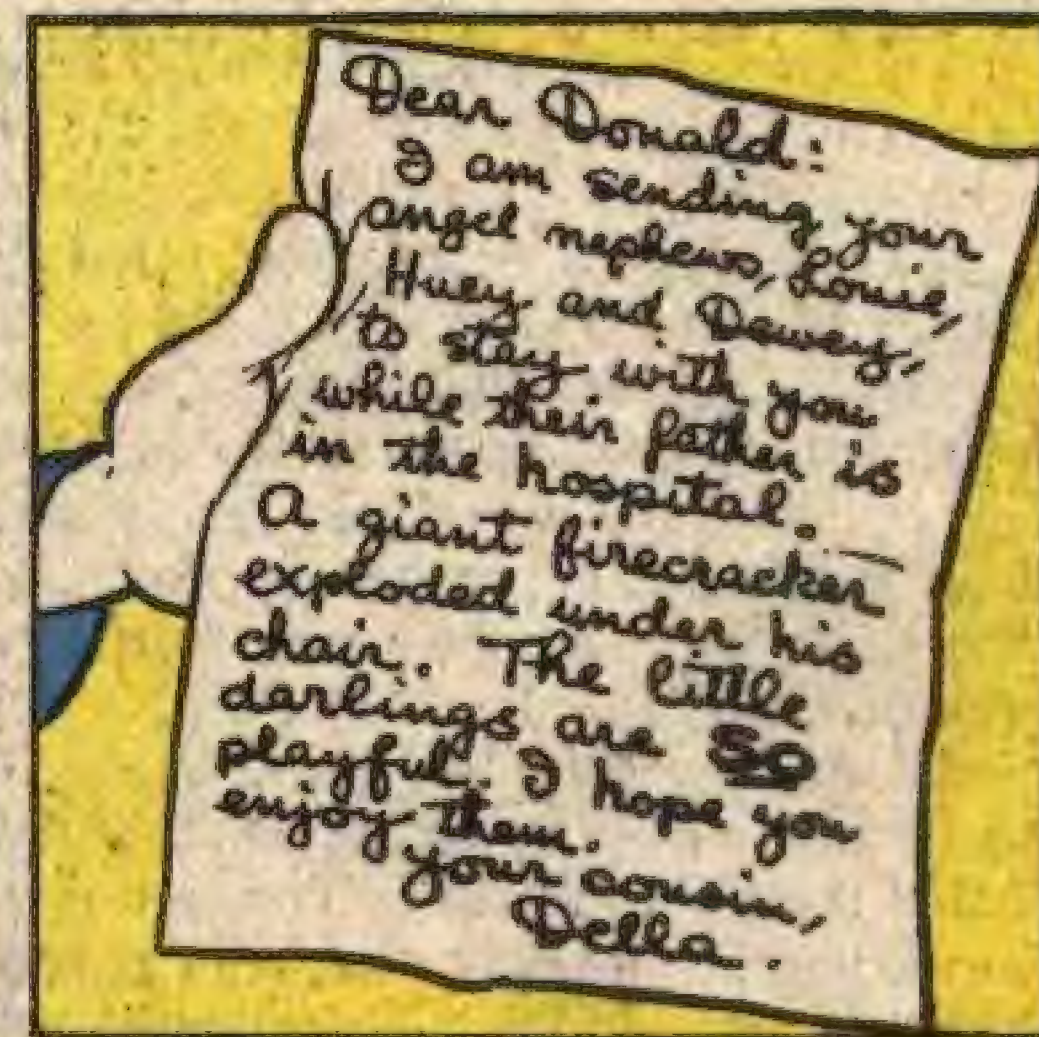 Dear Donald:
I am sending your
angel nephews, Louie,
Huey and Dewey,
to stay with you
while their father is
in the hospital. —
A giant firecracker
exploded under his
chair. The little
darlings are so
playful. I hope you
enjoy them.
your cousin,
Della.